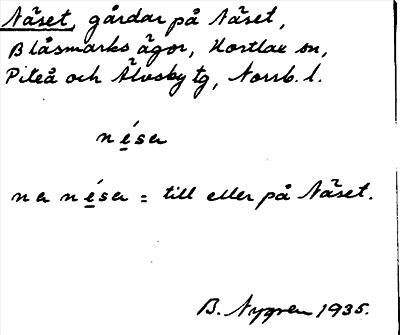 Näset, gårdar på Näset,
Blåsmarks ägor, Hortlax sn,
Piteå och Älvsby tg, Norrb. l.
néseɹ
na néseɹ = till eller på Näset.
B. Nygren 1935.